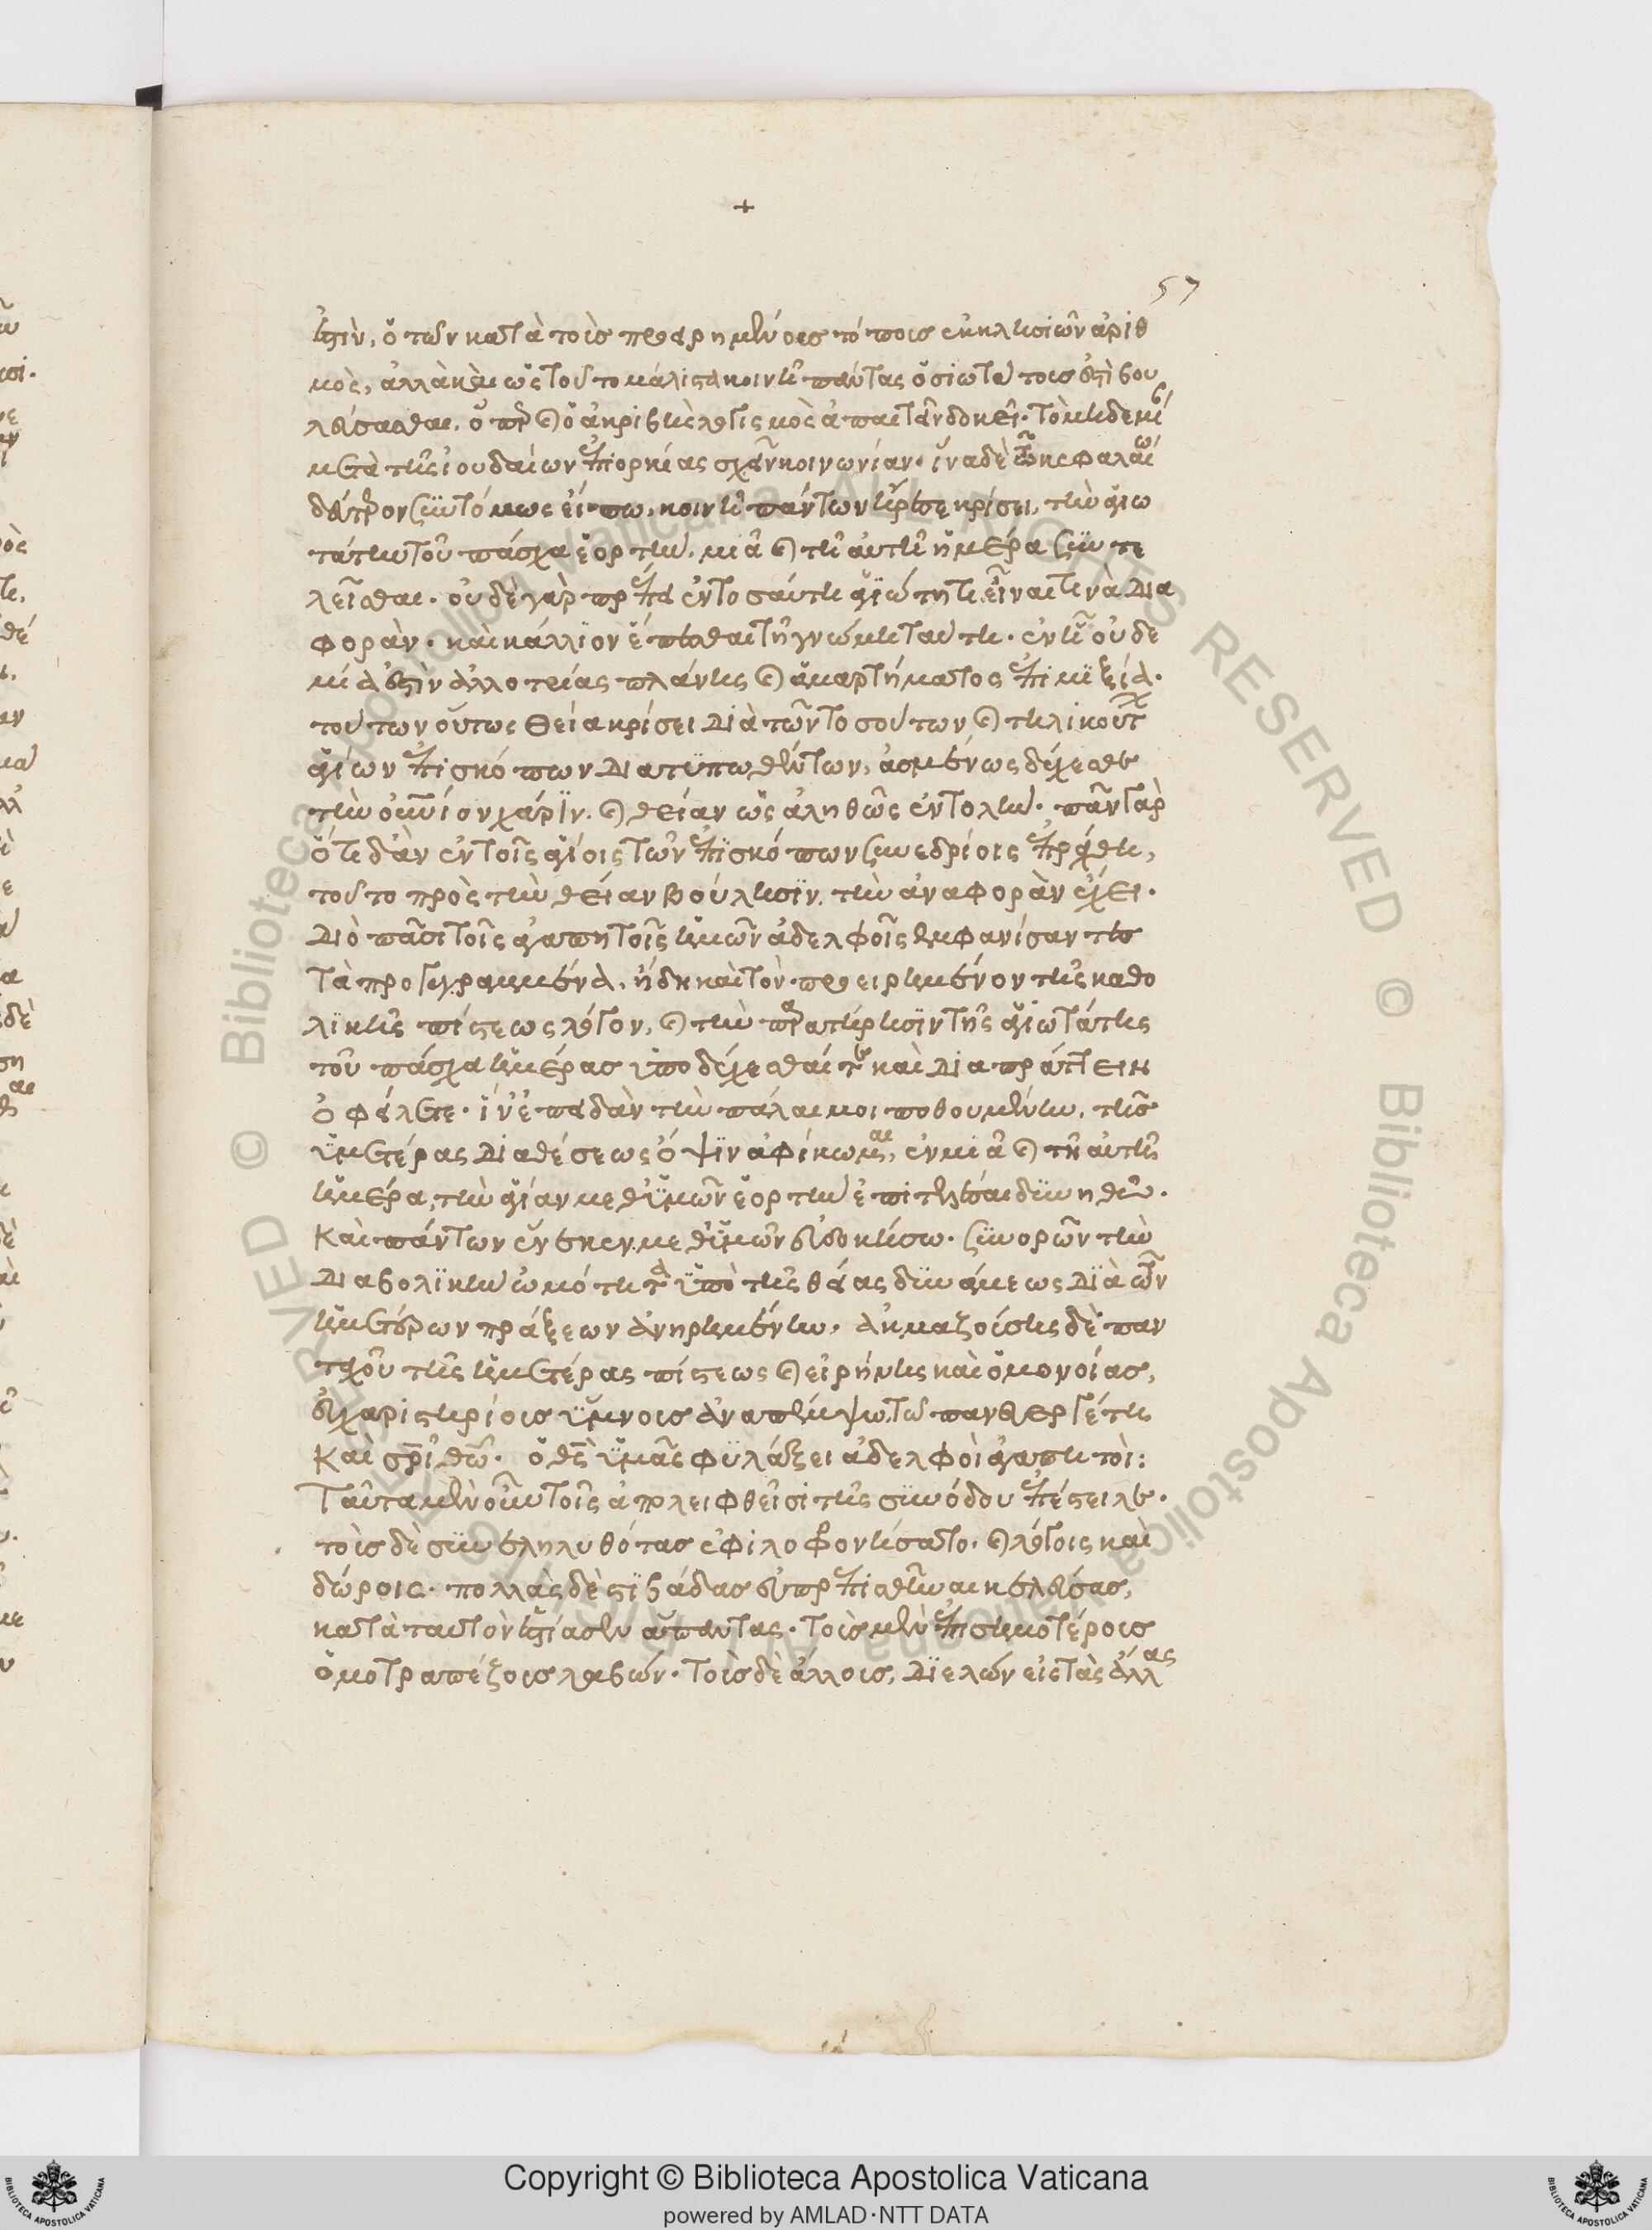 +
57
ἐστὶν, ὁ τῶν κατὰ τοὺς προειρημένους τόπους ἐκκλησιῶν ἀριθ
μὸς, ἀλλὰ καὶ ὡς τοῦτο μάλιστα κοινῇ πάντας ὁσιώτατον ἐστὶ βου
λεύσασθαι, ὅπερ καὶ ὁ ἀκριβὴς λογισμὸς ἀπαιτεῖν δοκεῖ. τὸ μηδεμί
μετὰ τῆς ἰουδαίων ἐπιορκίας σχεῖν κοινωνίαν. ἵνα δὲ τὸ κεφαλαιω
δέστερον συντόμως εἴπω, κοινῇ πάντων ἤρεσε κρίσει, τὴν ἁγιω
τάτην τοῦ πάσχα ἑορτὴν, μιᾷ καὶ τῇ αὐτῇ ἡμέρα συντε
λεῖσθαι. οὐδὲ γὰρ πρέπει ἐν τοσαύτη ἁγιώτητι εἶναι τινὰ δια
φορὰν. καὶ κάλλιον ἕπεσθαι τῇ γνώμη ταύτη. ἐν ᾗ οὐδε
μία ἐστὶν ἀλλοτρίας πλάνης καὶ ἁμαρτήματος ἐπιμιξία.
τούτων οὕτως θεία κρίσει διὰ τῶν τοσούτων καὶ τηλικούτων
ἁγίων ἐπισκόπων διατυπωθέντων, ἀσμένως δέχεσθε
τὴν οὐράνιον χάριν. καὶ θείαν ὡς ἀληθῶς ἐντολὴν. πᾶν γὰρ
ὅτι δ' ἂν ἐν τοῖς ἁγίοις τῶν ἐπισκόπων συνεδρίοις πραχθῆ,
τοῦτο πρὸς τὴν θείαν βούλησιν, τὴν ἀναφορὰν ἔχει.
διὸ πᾶσι τοῖς ἀγαπητοῖς ἡμῶν ἀδελφοῖς ἐμφανίσαντες
τὰ προγεγραμμένα, ἤδη καὶ τὸν προειρημένον τῆς καθο
λικῆς πίστεως λόγον, καὶ τὴν παρατήρησιν τῆς ἁγιωτάτης
τοῦ πάσχα ἡμέρας ὑποδέχεσθαί τε καὶ διαπράττειν
ὀφείλετε. ἵν' ἐπειδὰν τὴν πάλαι μοι ποθουμένην, τῆς
ὑμετέρας διαθέσεως ὄψιν ἀφίκωμαι, ἐν μιᾷ καὶ τῇ αὐτῇ
ἡμέρα, τὴν ἁγίαν μεθ' ὑμῶν ἑορτὴν ἐπιτελέσαι δυνηθῶ.
Καὶ πάντων ἕνεκεν, μεθ' ὑμῶν εὐδοκήσω. συνορῶν τὴν
διαβολικὴν ὠμότητα ὑπὸ τῆς θείας δυνάμεως διὰ τῶν
ἡμετέρων πράξεων ἀνῃρημένην, ἀκμαζούσης δὲ παν
ταχοῦ τῆς ἡμετέρας πίστεως καὶ εἰρήνης καὶ ὁμονοίας,
εὐχαριστηρίοις ὕμνοις ἀναπέμψω, τῷ πανευεργέτη
Καὶ σρι θῶ. ὁ θς ὑμᾶς φυλάξει ἀδελφοὶ ἀγαπητοὶ:
Ταῦτα μὲν οὖν τοῖς ἀπολειφθεῖσι τῆς συνόδου ἐπέστειλε.
τοὺς δὲ συνεληλυθότας ἐφιλοφρονήσατο, καὶ λόγοις καὶ
δώροις. πολλὰς δὲ στιβάδας εὐπρεπισθῆναι κελεύσας,
κατὰ ταυτὸν εἱστίασεν ἅπαντας. τοὺς μὲν ἐπισημοτέρους
ὁμοτραπέζους λαβών. τοὺς δὲ ἄλλους, διελών εἰς τὰς ἄλλας
Copyright © Biblioteca Apostolica Vaticana
powered by AMLAD·NTT DATA